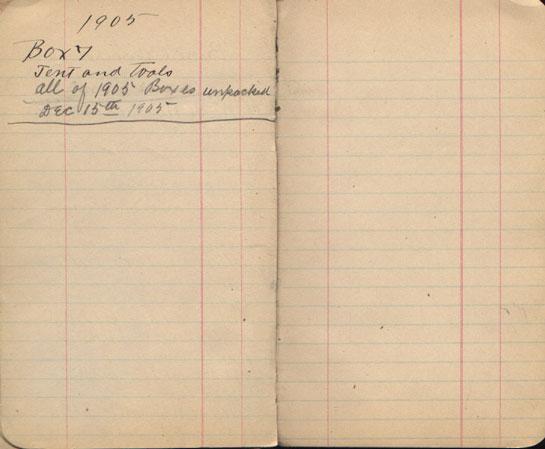 1905
Box 7
Tent and Tools
all of 1905 Boxes unpacked
Dec 15th 1905